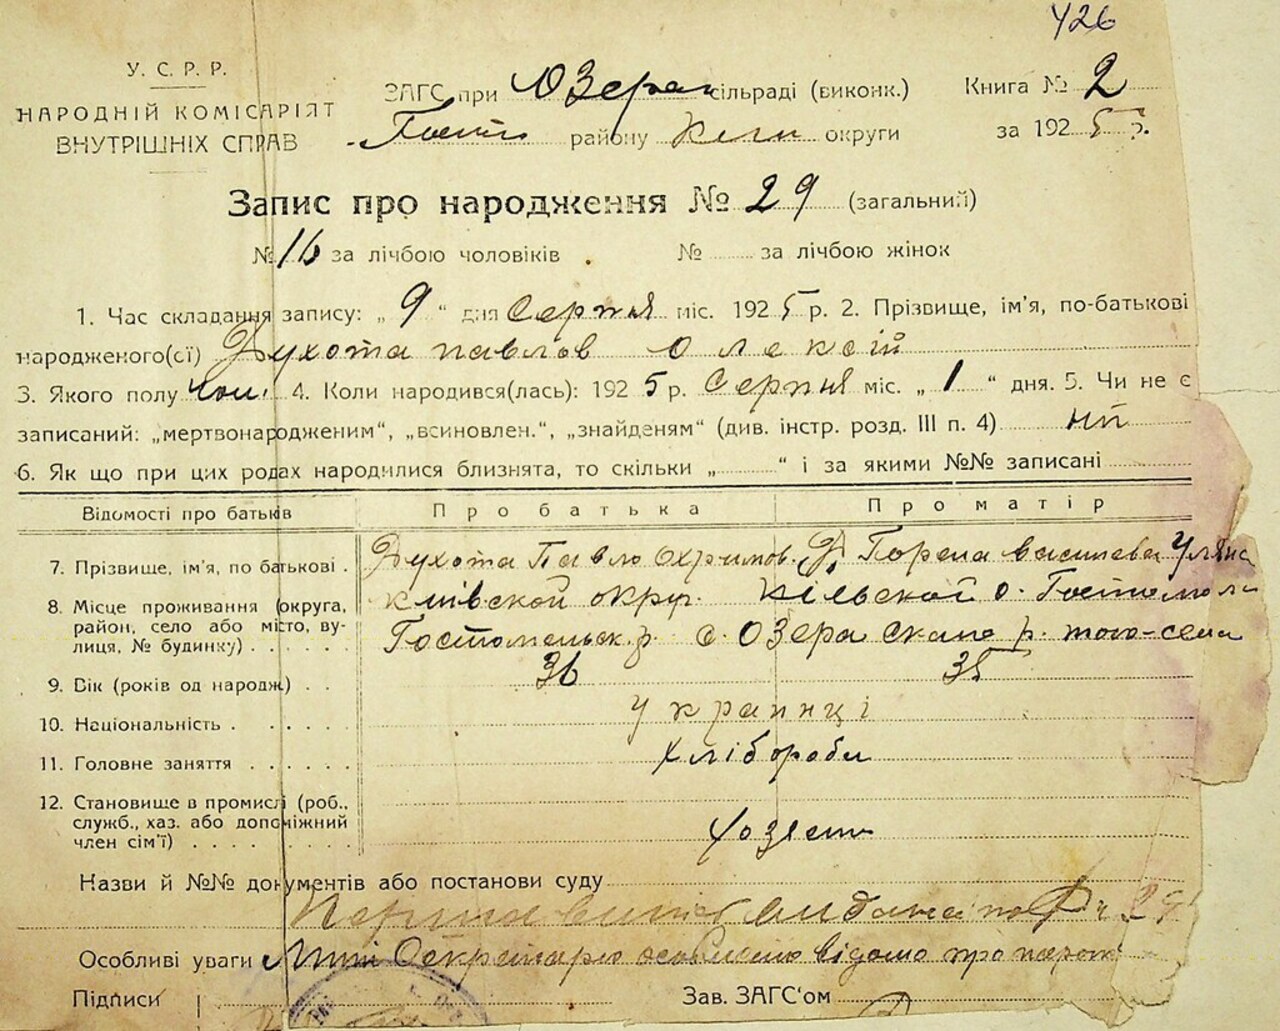 426
У. С. Р. Р.
НАРОДНІЙ КОМІСАРІЯТ
ВНУТРІШНІХ СПРАВ
ЗАГС при Озера сільраді (виконк.)
Гост району Киги округи
Книга № 2
за 1925 р.
Запис про народження № 29 (загальний)
№ 16 за лічбою чоловіків № за лічбою жінок
1. Час складання запису: „ 9 “ дня Серпня міс. 1925 р. 2. Прізвище, ім'я, по-батькові
народженого(ої) Духота павлов олексій
3. Якого полу чол. 4. Коли народився(лась): 1925 р. Серпня міс. „ 1 “ дня. 5. Чи не є
записаний: „мертвонародженим“, „всиновлен.“, „знайденям“ (див. інстр. розд. III п. 4) ні
6. Як що при цих родах народилися близнята, то скільки „ “ і за якими №№ записані
Відомості про батьків Про батька Про матір
7. Прізвище, ім'я, по батькові . Духота Павло Охримов. Д. Горпа василева Уляна
8. Місце проживання (округа, район, село або місто, вулиця, № будинку) . . . . . . київской округ. Гостомельск. р. с. Озера Кіевской о. Гостомель р. того-села
9. Вік (років од народж.) . . 36 35
10. Національність . . . . . українці
11. Головне заняття . . . . . . хлібороби
12. Становище в промислі (роб., служб., хаз. або допоміжний член сім'ї) . . . . . . . . . . хозяєни
Назви й №№ документів або постанови суду
видана по
Особливі уваги Мині Секретарю особисто відомо про народ
Підписи Зав. ЗАГС'ом